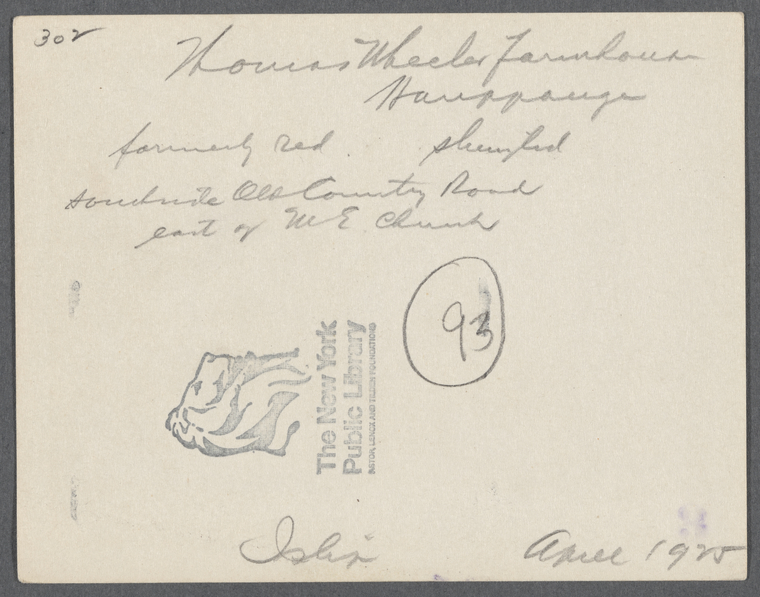 302
Thomas Wheeler Farmhouse
Hauppauge
formerly red shingled
south side Old Country Road
east of M E Church
93
The New York
Public Library
ASTOR, LENOX AND TILDEN FOUNDATIONS
Islip
April 1925